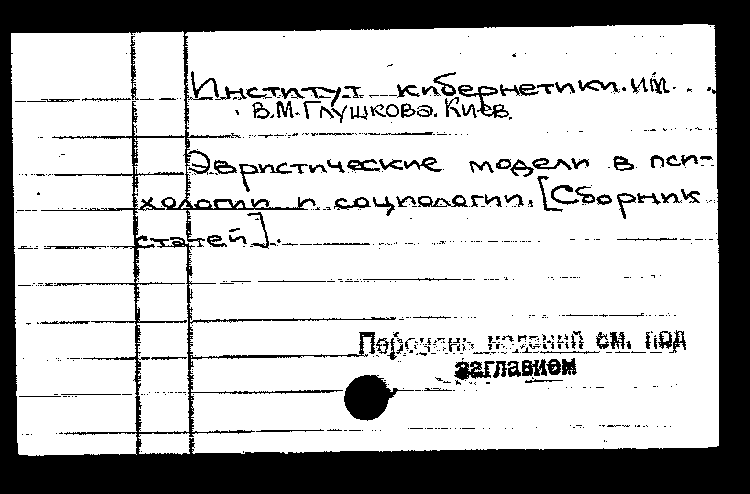 Институт кибернетики. им.
В.М. Глушкова. Киев.
Эвристические модели в пси-
хологии и социологии. [Сборник
статей].
Перечень изданий см. под
заглавием